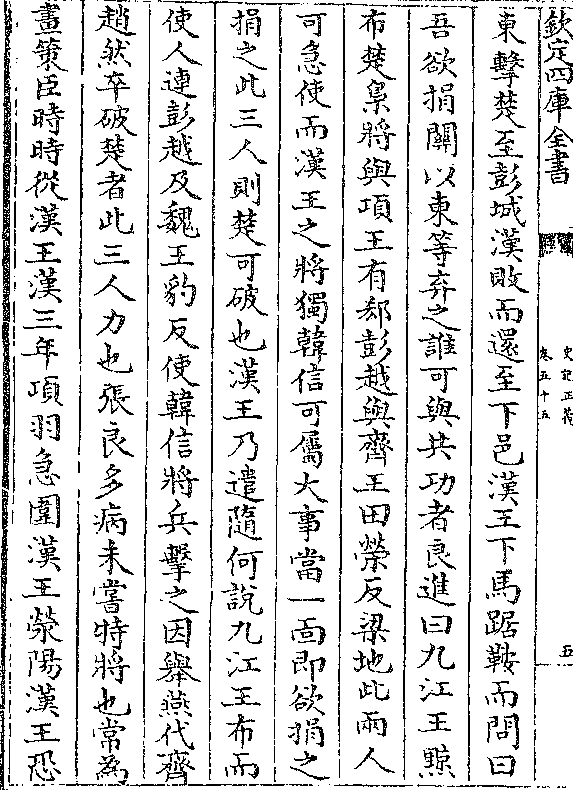 欽定四庫全書
史記正義
卷五十五
五
東擊楚至彭城漢敗而還至下邑漢王下馬踞鞍而問曰
吾欲捐關以東等弃之誰可與共功者良進曰九江王黥
布楚梟將與項王有郄彭越與齊王田榮反梁地此兩人
可急使而漢王之將獨韓信可屬大事當一面即欲捐之
捐之此三人則楚可破也漢王乃遣隨何說九江王布而
使人連彭越及魏王豹反使韓信將兵擊之因舉燕代齊
趙然卒破楚者此三人力也張良多病未嘗特將也常為
畫策臣時時從漢王漢三年項羽急圍漢王滎陽漢王恐